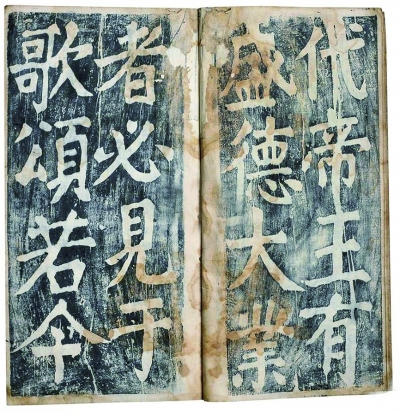 代帝王有
盛德大業
者必見于
歌頌若今